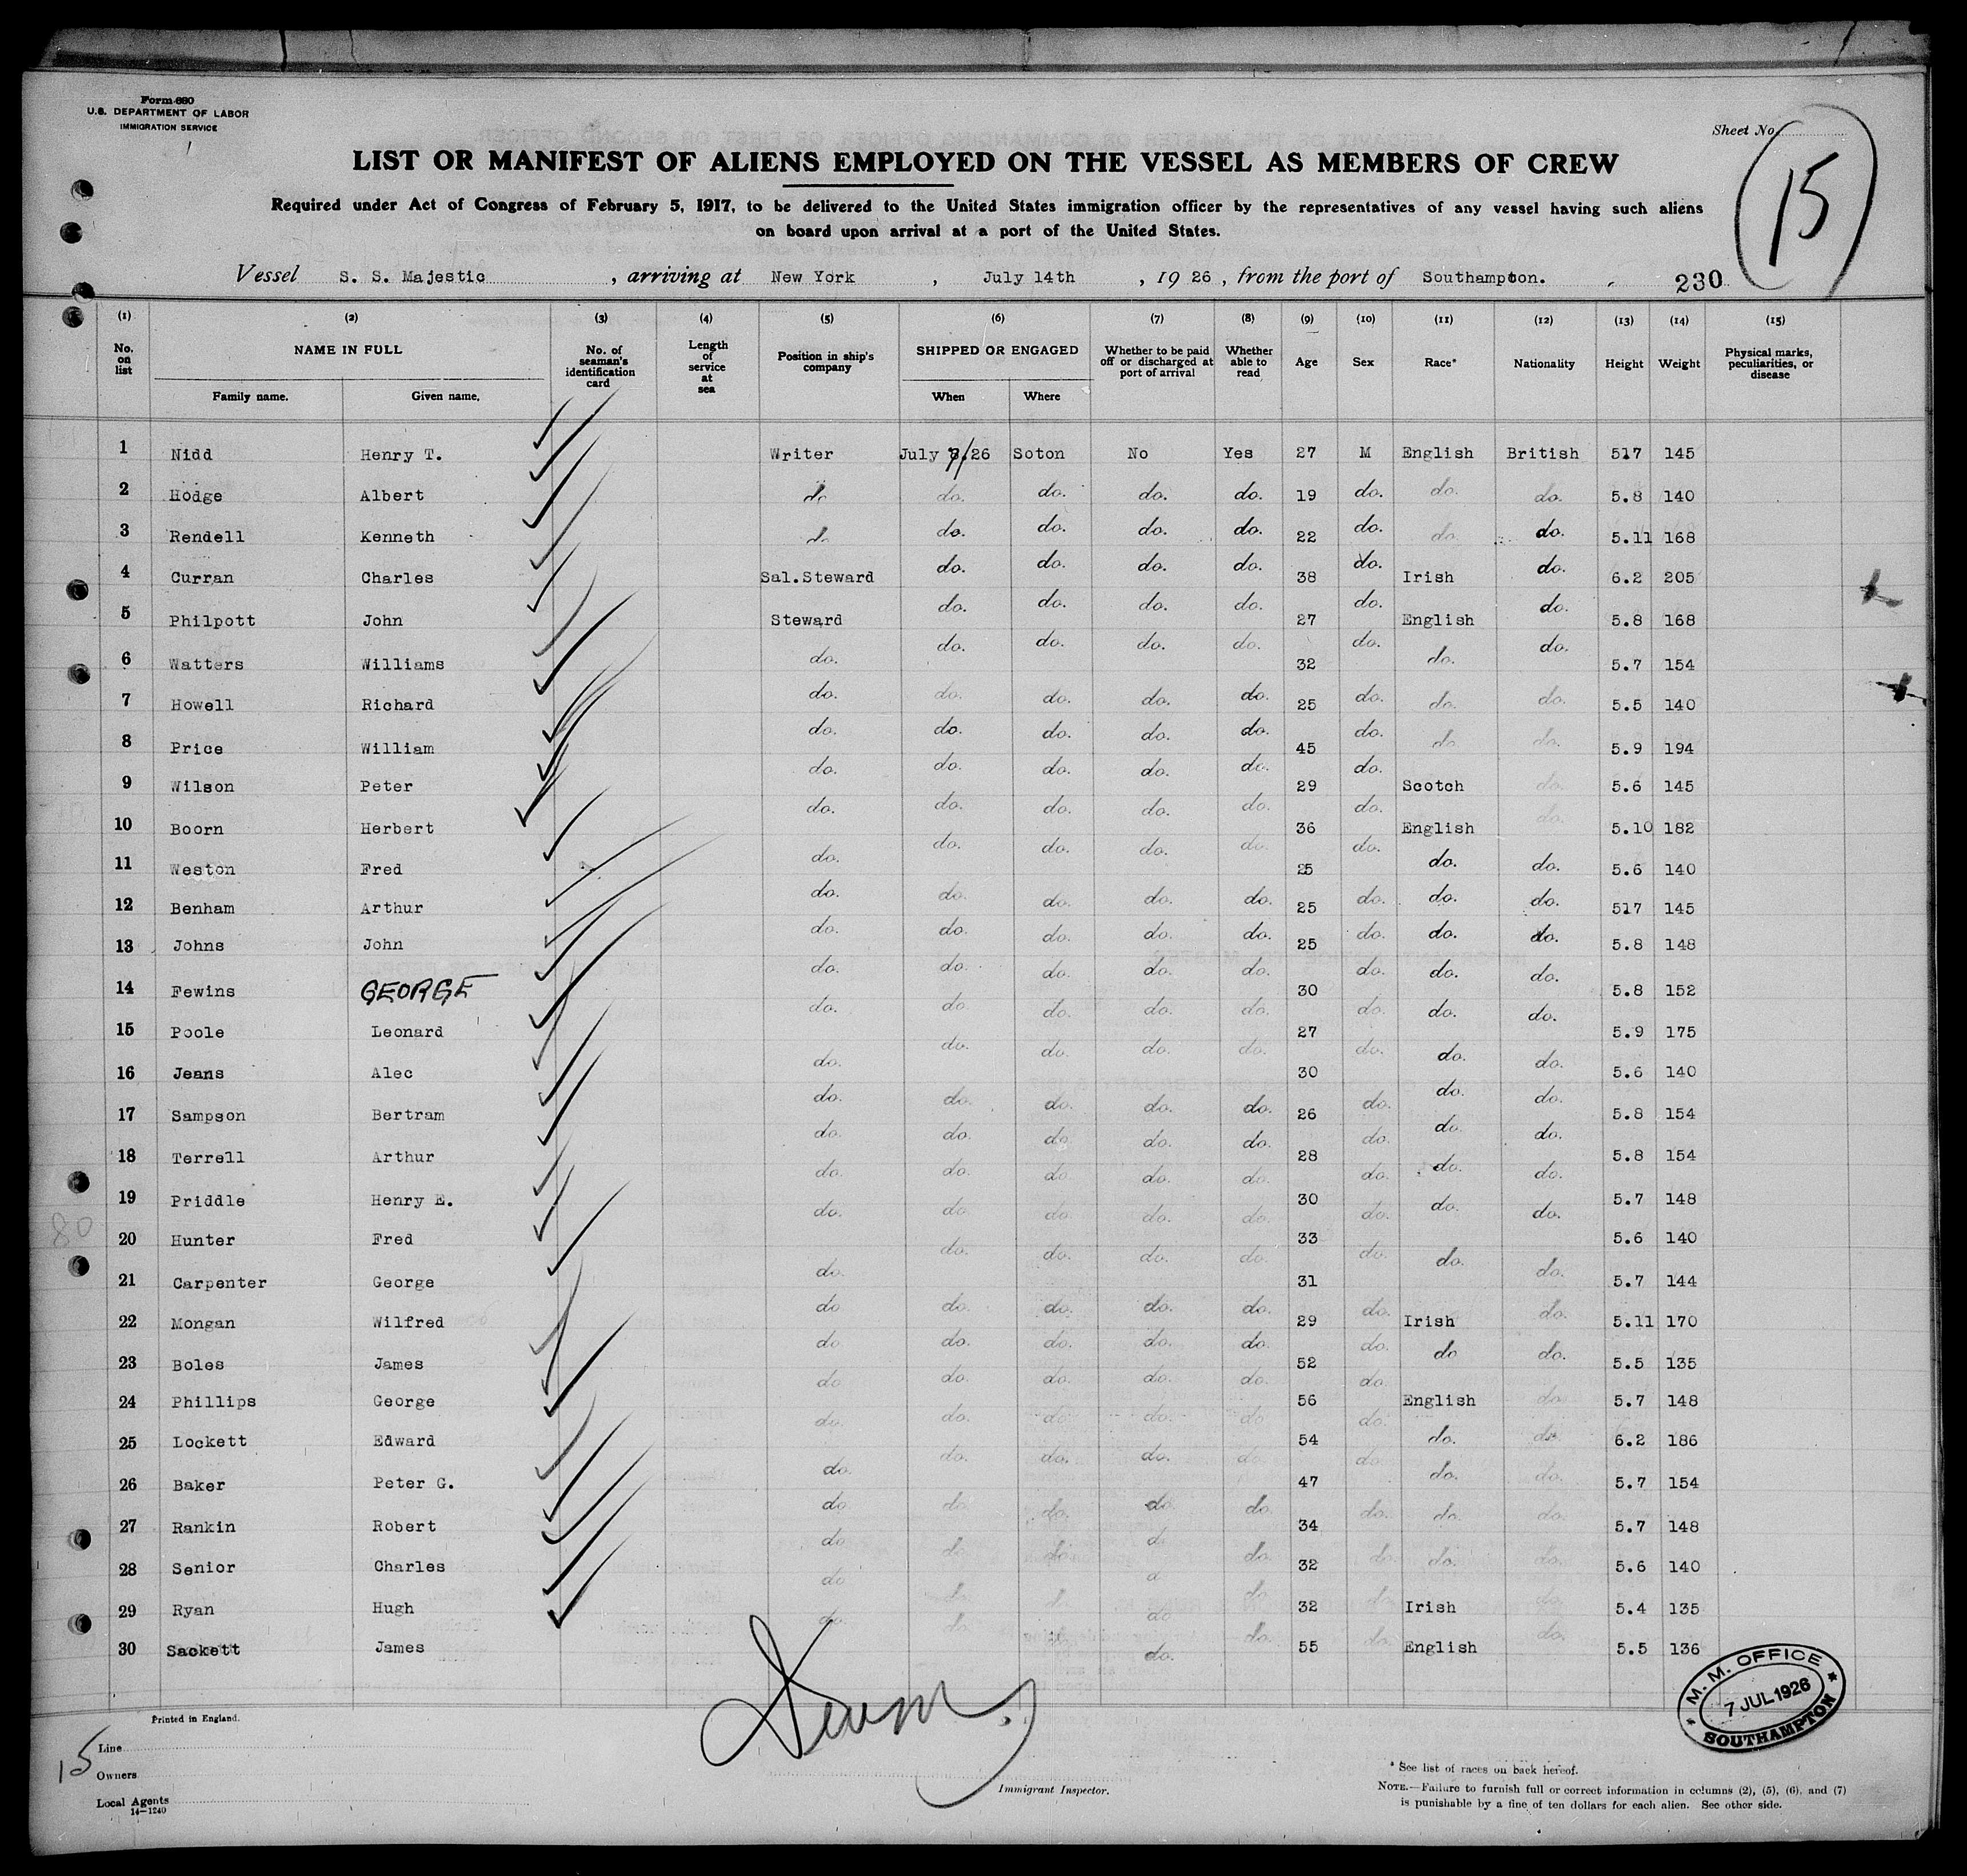 Form 680
U.S. DEPARTMENT OF LABOR
IMMIGRATION SERVICE
Sheet No.
15
LIST OR MANIFEST OF ALIENS EMPLOYED ON THE VESSEL AS MEMBERS OF CREW
Required under Act of Congress of February 5, 1917, to be delivered to the United States immigration officer by the representatives of any vessel having such aliens
on board upon arrival at a port of the United States.
Vessel S. S. Majestic, arriving at New York, July 14th, 1926, from the port of Southampton. 230
(1) (2) (3) (4) (5) (6) (7) (8) (9) (10) (11) (12) (13) (14) (15)
No. on list NAME IN FULL No. of seaman's identification card Length of service at sea Position in ship's company SHIPPED OR ENGAGED Whether to be paid off or discharged at port of arrival Whether able to read Age Sex Race* Nationality Height Weight Physical marks, peculiarities, or disease
Family name. Given name. When Where
1 Nidd Henry T. Writer July 7/26 Soton No Yes 27 M English British 517 145
2 Hodge Albert do do. do. do. do. 19 do. do. do. 5.8 140
3 Rendell Kenneth do do. do. do. do. 22 do. do. do. 5.11 168
4 Curran Charles Sal.Steward do. do. do. do. 38 do. Irish do. 6.2 205
5 Philpott John Steward do. do. do. do. 27 do. English do. 5.8 168
6 Watters Williams do. do. do. do. do. 32 do. do. do. 5.7 154
7 Howell Richard do. do. do. do. do. 25 do. do. do. 5.5 140
8 Price William do. do. do. do. do. 45 do. do do. 5.9 194
9 Wilson Peter do. do. do. do. do. 29 do. Scotch do. 5.6 145
10 Boorn Herbert do. do. do. do. do. 36 do. English do. 5.10 182
11 Weston Fred do. do. do. do. do. 25 do. do. do. 5.6 140
12 Benham Arthur do. do. do. do. do. 25 do. do. do. 517 145
13 Johns John do. do. do. do. do. 25 do. do. do. 5.8 148
14 Fewins GEORGE do. do. do. do. do. 30 do. do. do. 5.8 152
15 Poole Leonard do. do. do. do. do. 27 do. do. do. 5.9 175
16 Jeans Alec do. do. do. do. do. 30 do. do. do. 5.6 140
17 Sampson Bertram do. do. do. do. do. 26 do. do. do. 5.8 154
18 Terrell Arthur do. do. do. do. do. 28 do. do. do. 5.8 154
19 Priddle Henry E. do. do. do. do. do. 30 do. do. do. 5.7 148
20 Hunter Fred do. do. do. do. do. 33 do. do. do. 5.6 140
21 Carpenter George do. do. do. do. do. 31 do. do. do. 5.7 144
22 Mongan Wilfred do do. do. do. do. 29 do. Irish do. 5.11 170
23 Boles James do do. do. do. do. 52 do. do do. 5.5 135
24 Phillips George do do. do. do. do. 56 do. English do. 5.7 148
25 Lockett Edward do. do. do. do. do 54 do. do. do. 6.2 186
26 Baker Peter G. do. do. do. do. do. 47 do. do. do. 5.7 154
27 Rankin Robert do. do. do. do. do. 34 do. do. do. 5.7 148
28 Senior Charles do. do. do. do do. 32 do. do. do. 5.6 140
29 Ryan Hugh do do. do. do. 32 do. Irish do. 5.4 135
30 Sackett James do. do. do. do. do. 55 do. English do. 5.5 136
M. M. OFFICE
7 JUL 1926
SOUTHAMPTON
Printed in England.
15
Line
Owners
Local Agents
14-1240
Immigrant Inspector.
* See list of races on back hereof.
NOTE.—Failure to furnish full or correct information in columns (2), (5), (6), and (7)
is punishable by a fine of ten dollars for each alien. See other side.
80